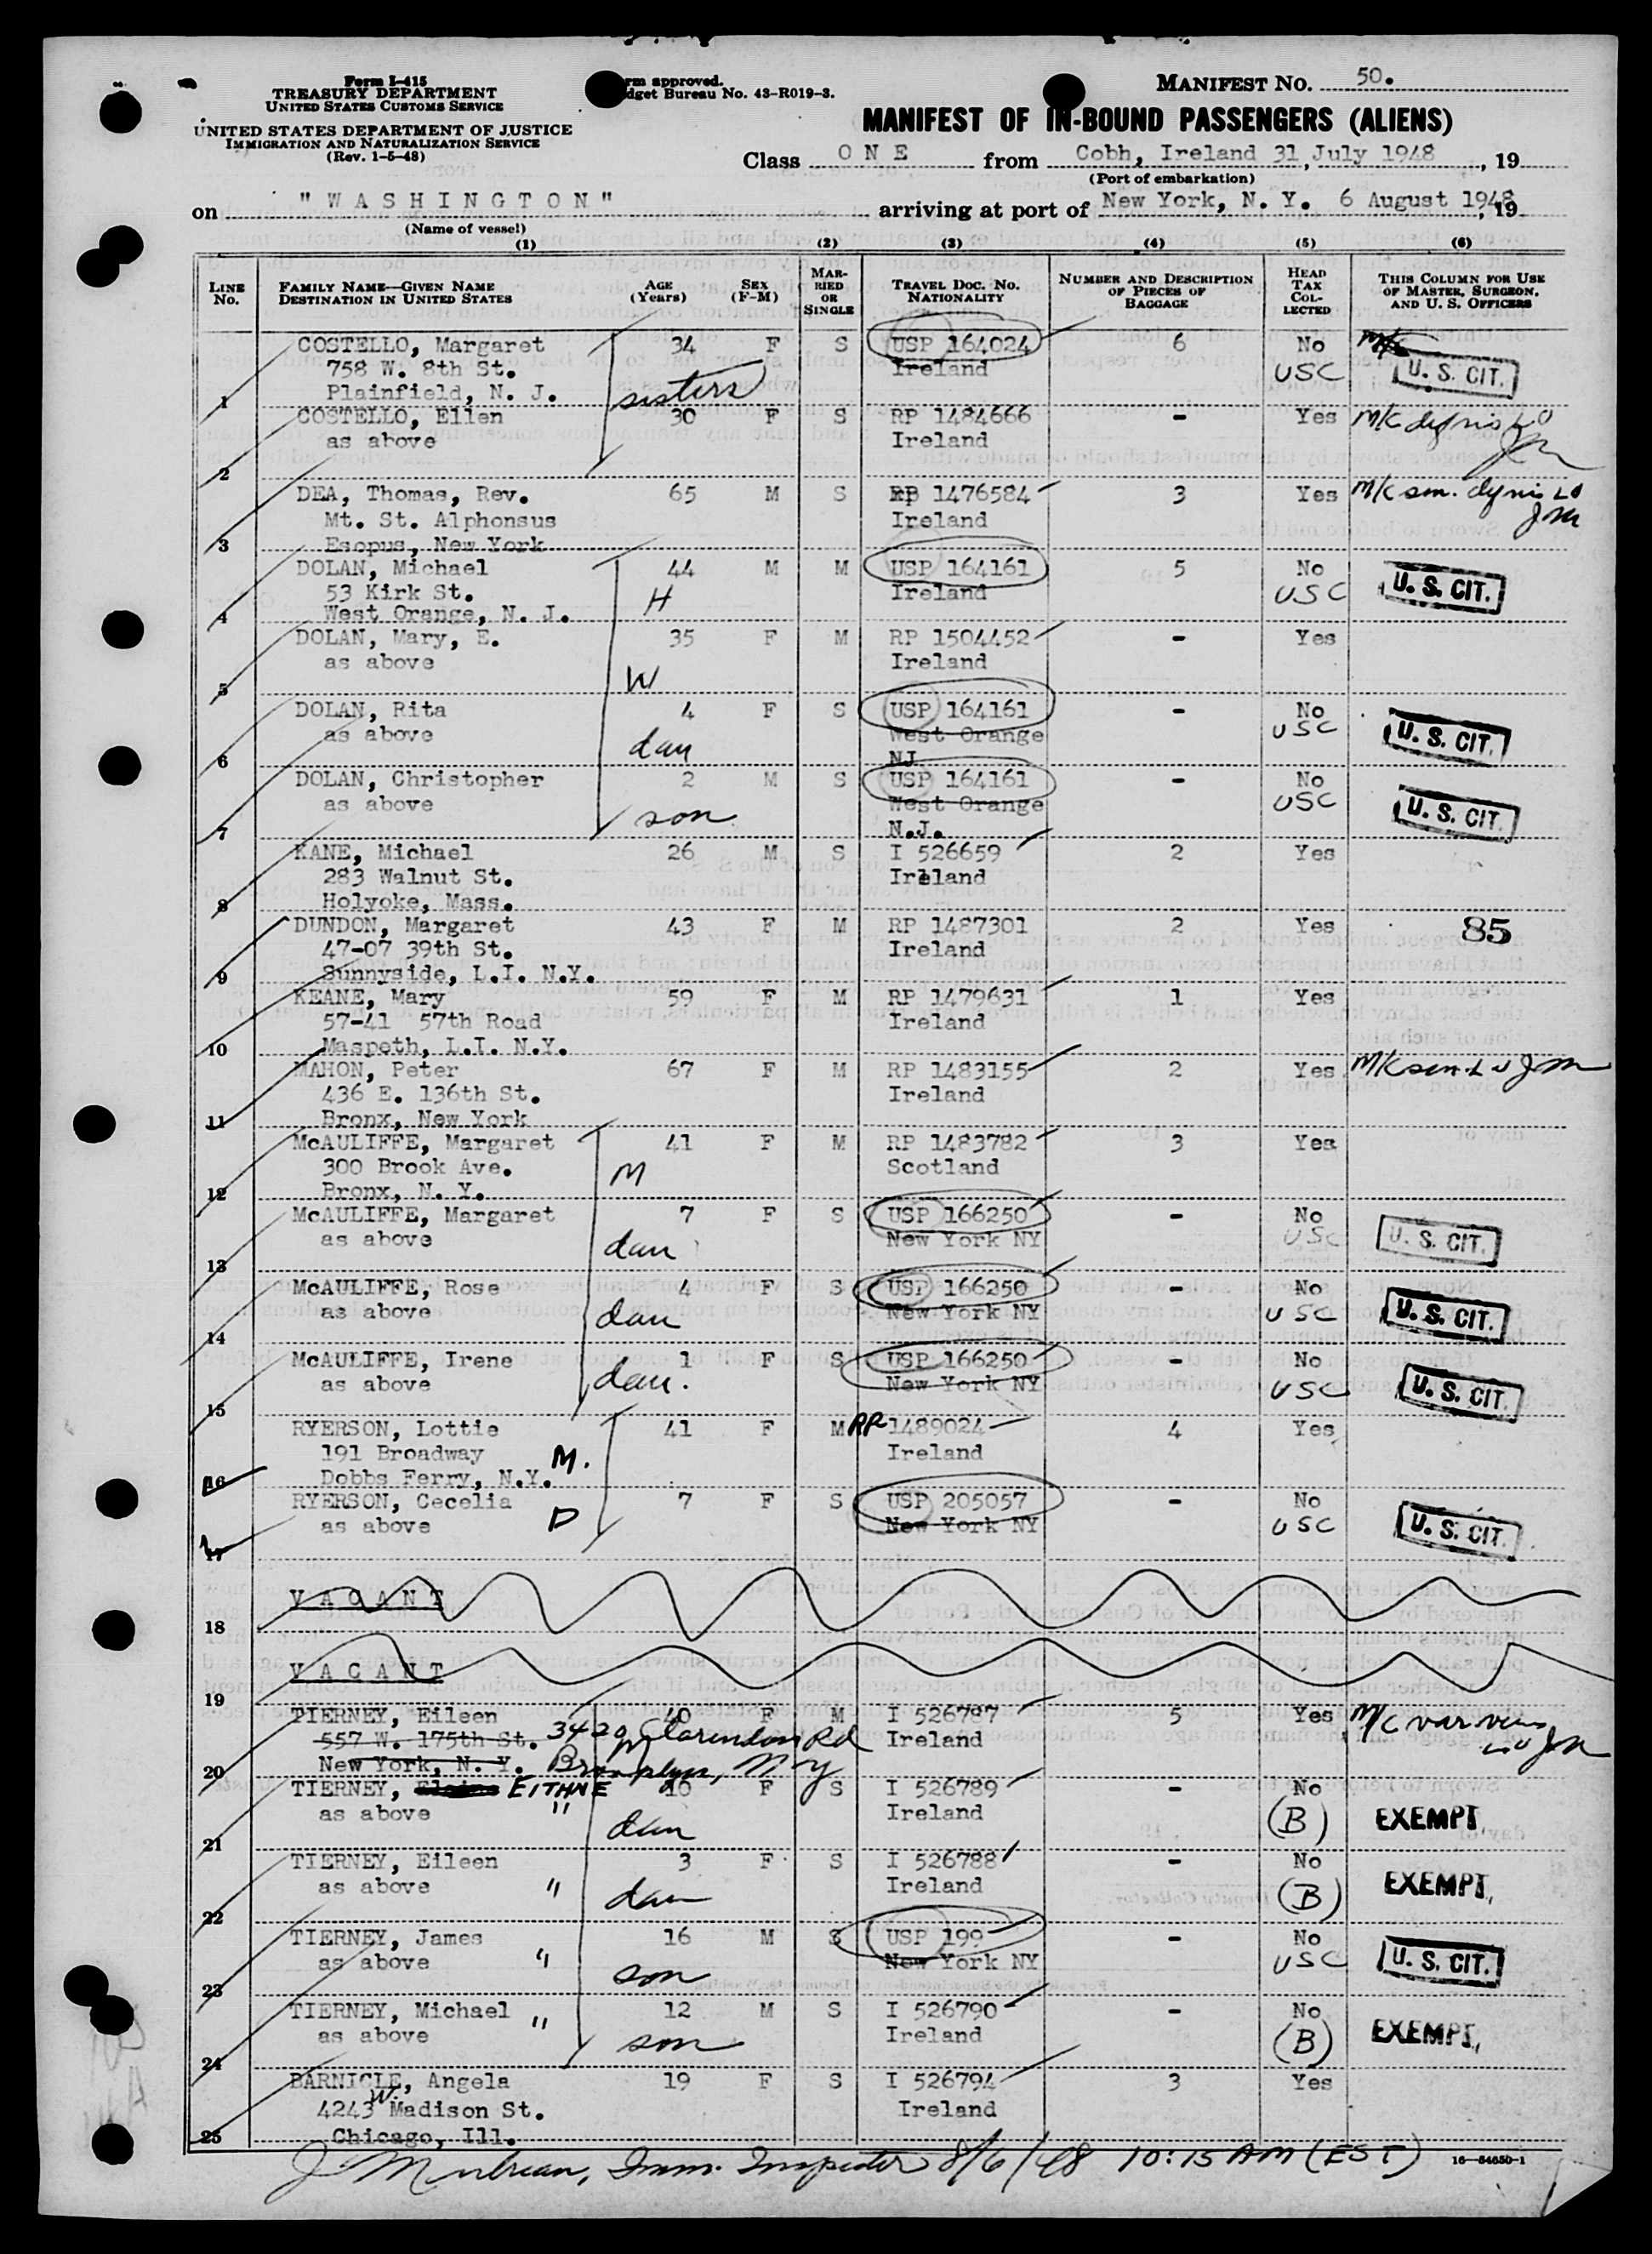 Form I-415
TREASURY DEPARTMENT
UNITED STATES CUSTOMS SERVICE
UNITED STATES DEPARTMENT OF JUSTICE
IMMIGRATION AND NATURALIZATION SERVICE
(Rev. 1-5-48)
rm approved.
dget Bureau No. 43-R019-3.
MANIFEST NO. 50.
MANIFEST OF IN-BOUND PASSENGERS (ALIENS)
Class O N E from Cobh, Ireland 31, July 1948, 19
(Port of embarkation)
on "W A S H I N G T O N" arriving at port of New York, N. Y. 6 August 1948, 19
(Name of vessel)
(1) (2) (3) (4) (5) (6)
LINE No. FAMILY NAME—GIVEN NAME DESTINATION IN UNITED STATES AGE (Years) SEX (F-M) MARRIED OR SINGLE TRAVEL DOC. NO. NATIONALITY NUMBER AND DESCRIPTION OF PIECES OF BAGGAGE HEAD TAX COLLECTED THIS COLUMN FOR USE OF MASTER, SURGEON, AND U. S. OFFICERS
COSTELLO, Margaret 34 F S USP 164024 6 No
758 W. 8th St. Ireland USC U. S. CIT.
1 Plainfield, N. J. sisters
COSTELLO, Ellen 30 F S RP 1484666 - Yes M/C
as above Ireland
2
DEA, Thomas, Rev. 65 M S RP 1476584 3 Yes M/C sen.
Mt. St. Alphonsus Ireland JM
3 Esopus, New York
DOLAN, Michael 44 M M USP 164161 5 No
53 Kirk St. H Ireland USC U. S. CIT.
4 West Orange, N. J.
DOLAN, Mary, E. 35 F M RP 1504452 - Yes
as above Ireland
5 W
DOLAN, Rita 4 F S USP 164161 - No
as above dau West Orange USC U. S. CIT.
6 NJ
DOLAN, Christopher 2 M S USP 164161 - No
as above son West Orange USC U. S. CIT.
7 N.J.
KANE, Michael 26 M S I 526659 2 Yes
283 Walnut St. Ireland
8 Holyoke, Mass.
DUNDON, Margaret 43 F M RP 1487301 2 Yes 85
47-07 39th St. Ireland
9 Sunnyside, L.I. N.Y.
KEANE, Mary 59 F M RP 1479631 1 Yes
57-41 57th Road Ireland
10 Maspeth, L.I. N.Y.
MAHON, Peter 67 F M RP 1483155 2 Yes M/C sen JM
436 E. 136th St. Ireland
11 Bronx, New York
McAULIFFE, Margaret 41 F M RP 1483782 3 Yes
300 Brook Ave. M Scotland
12 Bronx, N. Y.
McAULIFFE, Margaret 7 F S USP 166250 - No
as above dau New York NY USC U. S. CIT.
13
McAULIFFE, Rose 4 F S USP 166250 - No
as above dau New York NY USC U. S. CIT.
14
McAULIFFE, Irene 1 F S USP 166250 - No
as above dau. New York NY USC U. S. CIT.
15
RYERSON, Lottie 41 F M RP 1489024 4 Yes
191 Broadway M. Ireland
16 Dobbs Ferry, N.Y.
RYERSON, Cecelia 7 F S USP 205057 - No
as above D New York NY USC U. S. CIT.
17
V A C A N T
18
V A C A N T
19
TIERNEY, Eileen 40 F M I 526787 5 Yes M/C var veins
557 W. 175th St. 3420 Clarendon Rd Ireland JM
20 New York, N. Y. Brooklyn, NY
TIERNEY, EITHNE 10 F S I 526789 - No
as above " dau Ireland (B) EXEMPT
21
TIERNEY, Eileen 3 F S I 526788 - No
as above " dau Ireland (B) EXEMPT
22
TIERNEY, James 16 M S USP 199 - No
as above " son New York NY USC U. S. CIT.
23
TIERNEY, Michael 12 M S I 526790 - No
as above " son Ireland (B) EXEMPT
24
BARNICLE, Angela 19 F S I 526794 3 Yes
4243 W. Madison St. Ireland
25 Chicago, Ill.
Imm. Inspector 8/6/48 10:15 AM (EST) 16—54650-1